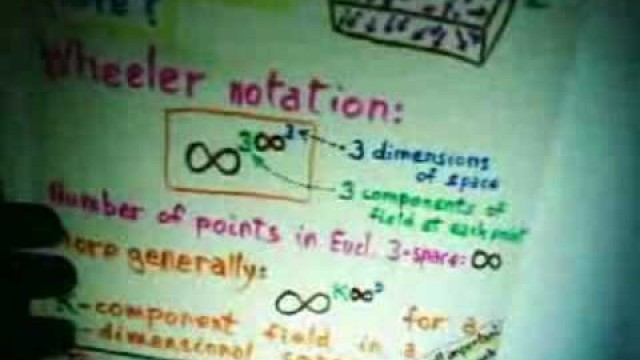 Wheeler notation:
∞^3∞^3
3 dimensions
of space
3 components of
field at each point
Number of points in Eucl. 3-space: ∞
more generally:
∞^k∞^3 for a
-component field in a
-dimensional